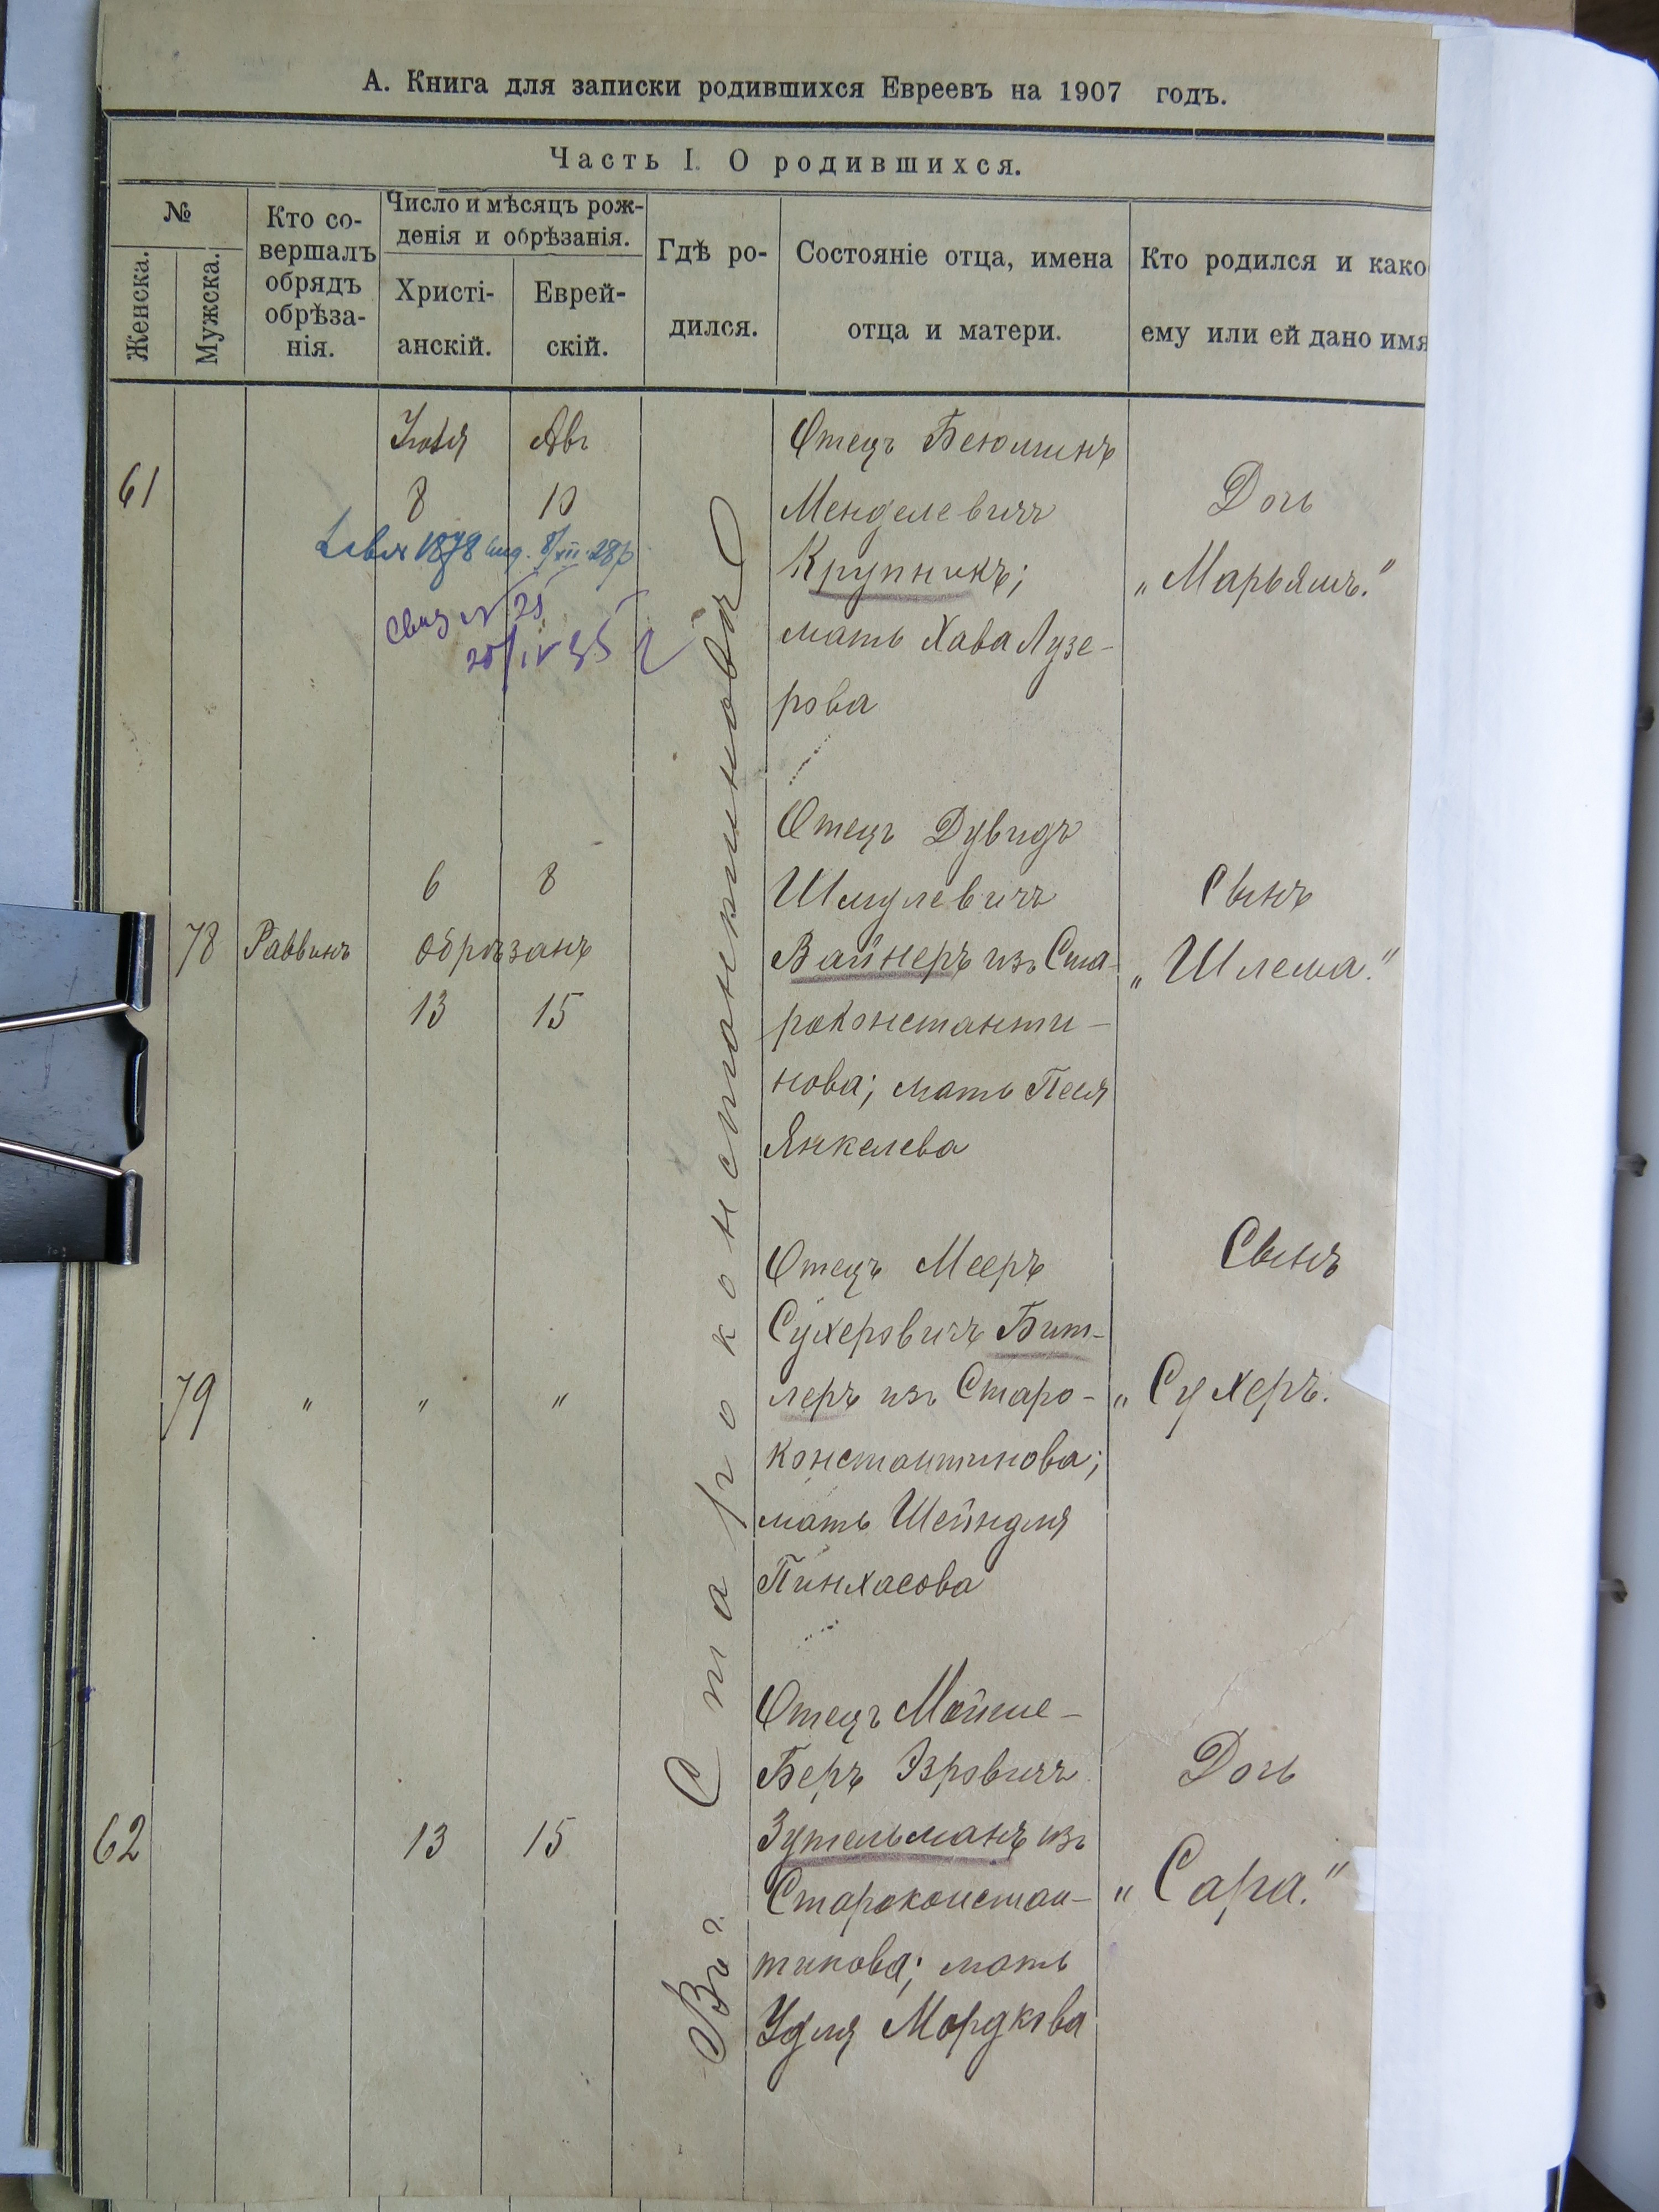 А. Книга для записки родившихся Евреевъ на 1907 годъ.
Часть I. О родившихся.
№
Женска.
Мужска.
Кто со-
вершалъ
обрядъ
обрѣза-
нія.
Число и мѣсяцъ рож-
денія и обрѣзанія.
Христі-
анскій.
Еврей-
скій.
Гдѣ ро-
дился.
Состояніе отца, имена
отца и матери.
Кто родился и како
ему или ей дано имя
Въ г. Староконстантиновѣ
61
Іюля
8
Авг
10
1878 8/XII 28р
№ 25
25/IV 35
Отецъ Беюминъ
Менделевичъ
Крупникъ;
мать Хава Лузе-
рова
Дочь
„Марьямъ."
78
Раввинъ
6 8
обрѣзанъ
13 15
Отецъ Дувидъ
Шмулевичъ
Вайнеръ изъ Ста-
роконстанти-
нова; мать Песя
Янкелева
Сынъ
„Шлема."
79
" " "
Отецъ Мееръ
Сухеровичъ Бит-
леръ изъ Старо-
константинова;
мать Шейндля
Пинхасова
Сынъ
„Сухеръ.
62
13 15
Отецъ Мойше-
Беръ Эровичъ
Зутельманъ изъ
Староконстан-
тинова; мать
Удля Мордкова
Дочь
„Сара."